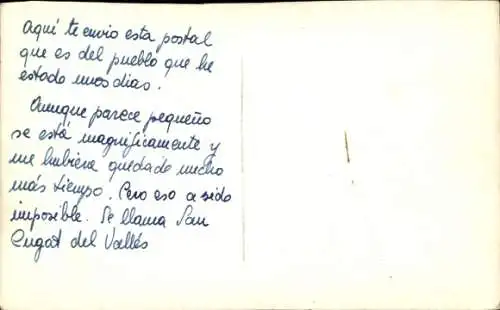 Aquí te envio esta postal
que es del pueblo que he
estado unos dias.
Aunque parece pequeño
se está magnificamente y
me hubiera quedado mucho
más tiempo. Pero eso a sido
imposible. Se llama San
Cugat del Vallés